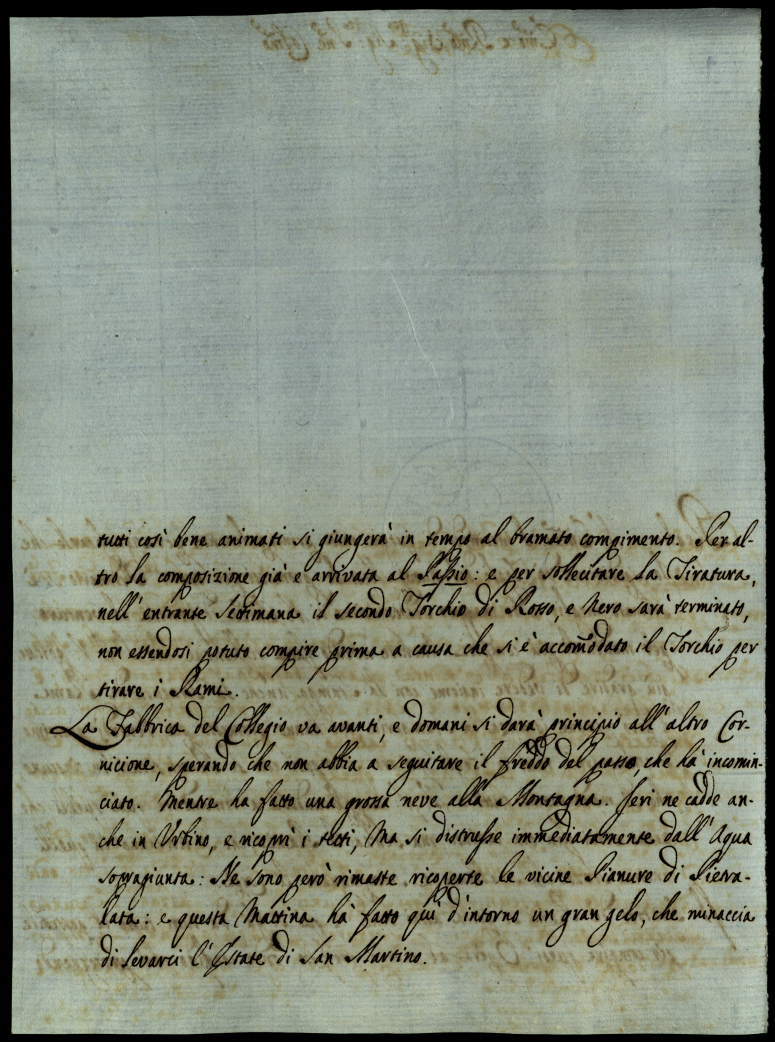 tutti così bene animati si giungerà in tempo al bramato compimento. Per al-
tro la composizione già è arrivata al Passio: e per sollecitare la Tiratura,
nell'entrante Settimana il secondo Torchio di Rosso, e Nero sarà terminato,
non essendosi potuto compire prima a causa che si è accomõdato il Torchio per
tirare i Rami.
La Fabbrica del Collegio va avanti, e domani si darà principio all'altro Cor-
nicione, sperando che non abbia a seguitare il freddo del passo, che hà incomin-
ciato. Mentre ha fatto una grossa neve alla Montagna. Jeri ne cadde an-
che in Urbino, e ricoprì i tetti, Ma si distrusse immediatamente dall'Aqua
sopragiunta: Ne sono però rimaste ricoperte le vicine Pianure di Pietra-
lata: e questa Mattina hà fatto quì d'intorno un gran gelo, che minaccia
di levarci l'Estate di San Martino.